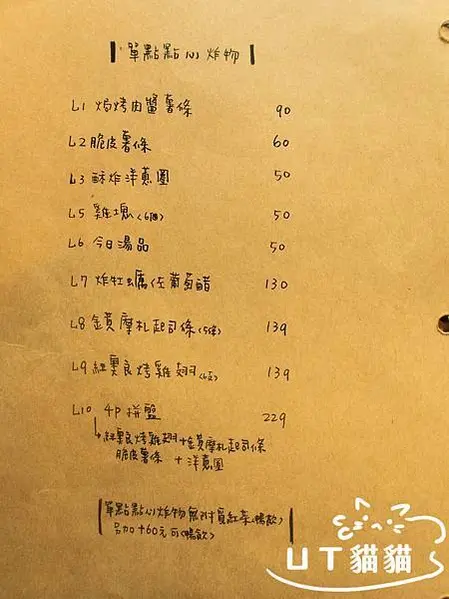 單點點心炸物
L1 焗烤肉醬薯條 90
L2 脆皮薯條 60
L3 酥炸洋蔥圈 50
L5 雞塊(6個) 50
L6 今日湯品 50
L7 炸牡蠣佐葡萄醋 130
L8 金黃摩札起司條(5條) 139
L9 紐奧良烤雞翅(6支) 139
L10 4P拼盤 229
↳紐奧良烤雞翅+金黃摩札起司條
脆皮薯條 + 洋蔥圈
單點點心炸物無附贈紅茶(暢飲)
另加+60元可(暢飲)
UT貓貓